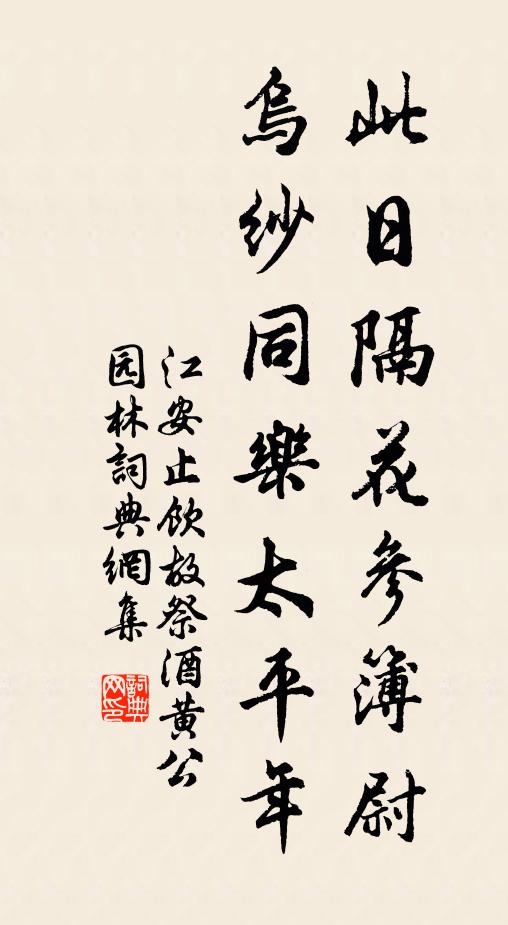 此日隔花參簿尉
烏紗同樂太平年
江安止飲故祭酒黃公
园林詞典網集
詞典網印